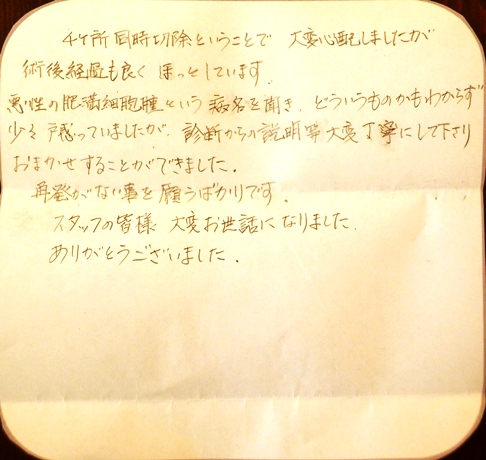 4ヶ所同時切除ということで 大変心配しましたが
術後経過も良く ほっとしています.
悪性の肥満細胞腫という病名を聞き、どういうものかもわからず
少々戸惑っていましたが、診断からの説明等大変丁寧にして下さり
おまかせすることができました.
再発がない事を願うばかりです.
スタッフの皆様 大変お世話になりました.
ありがとうございました.